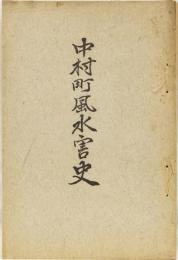 中村町風水害史